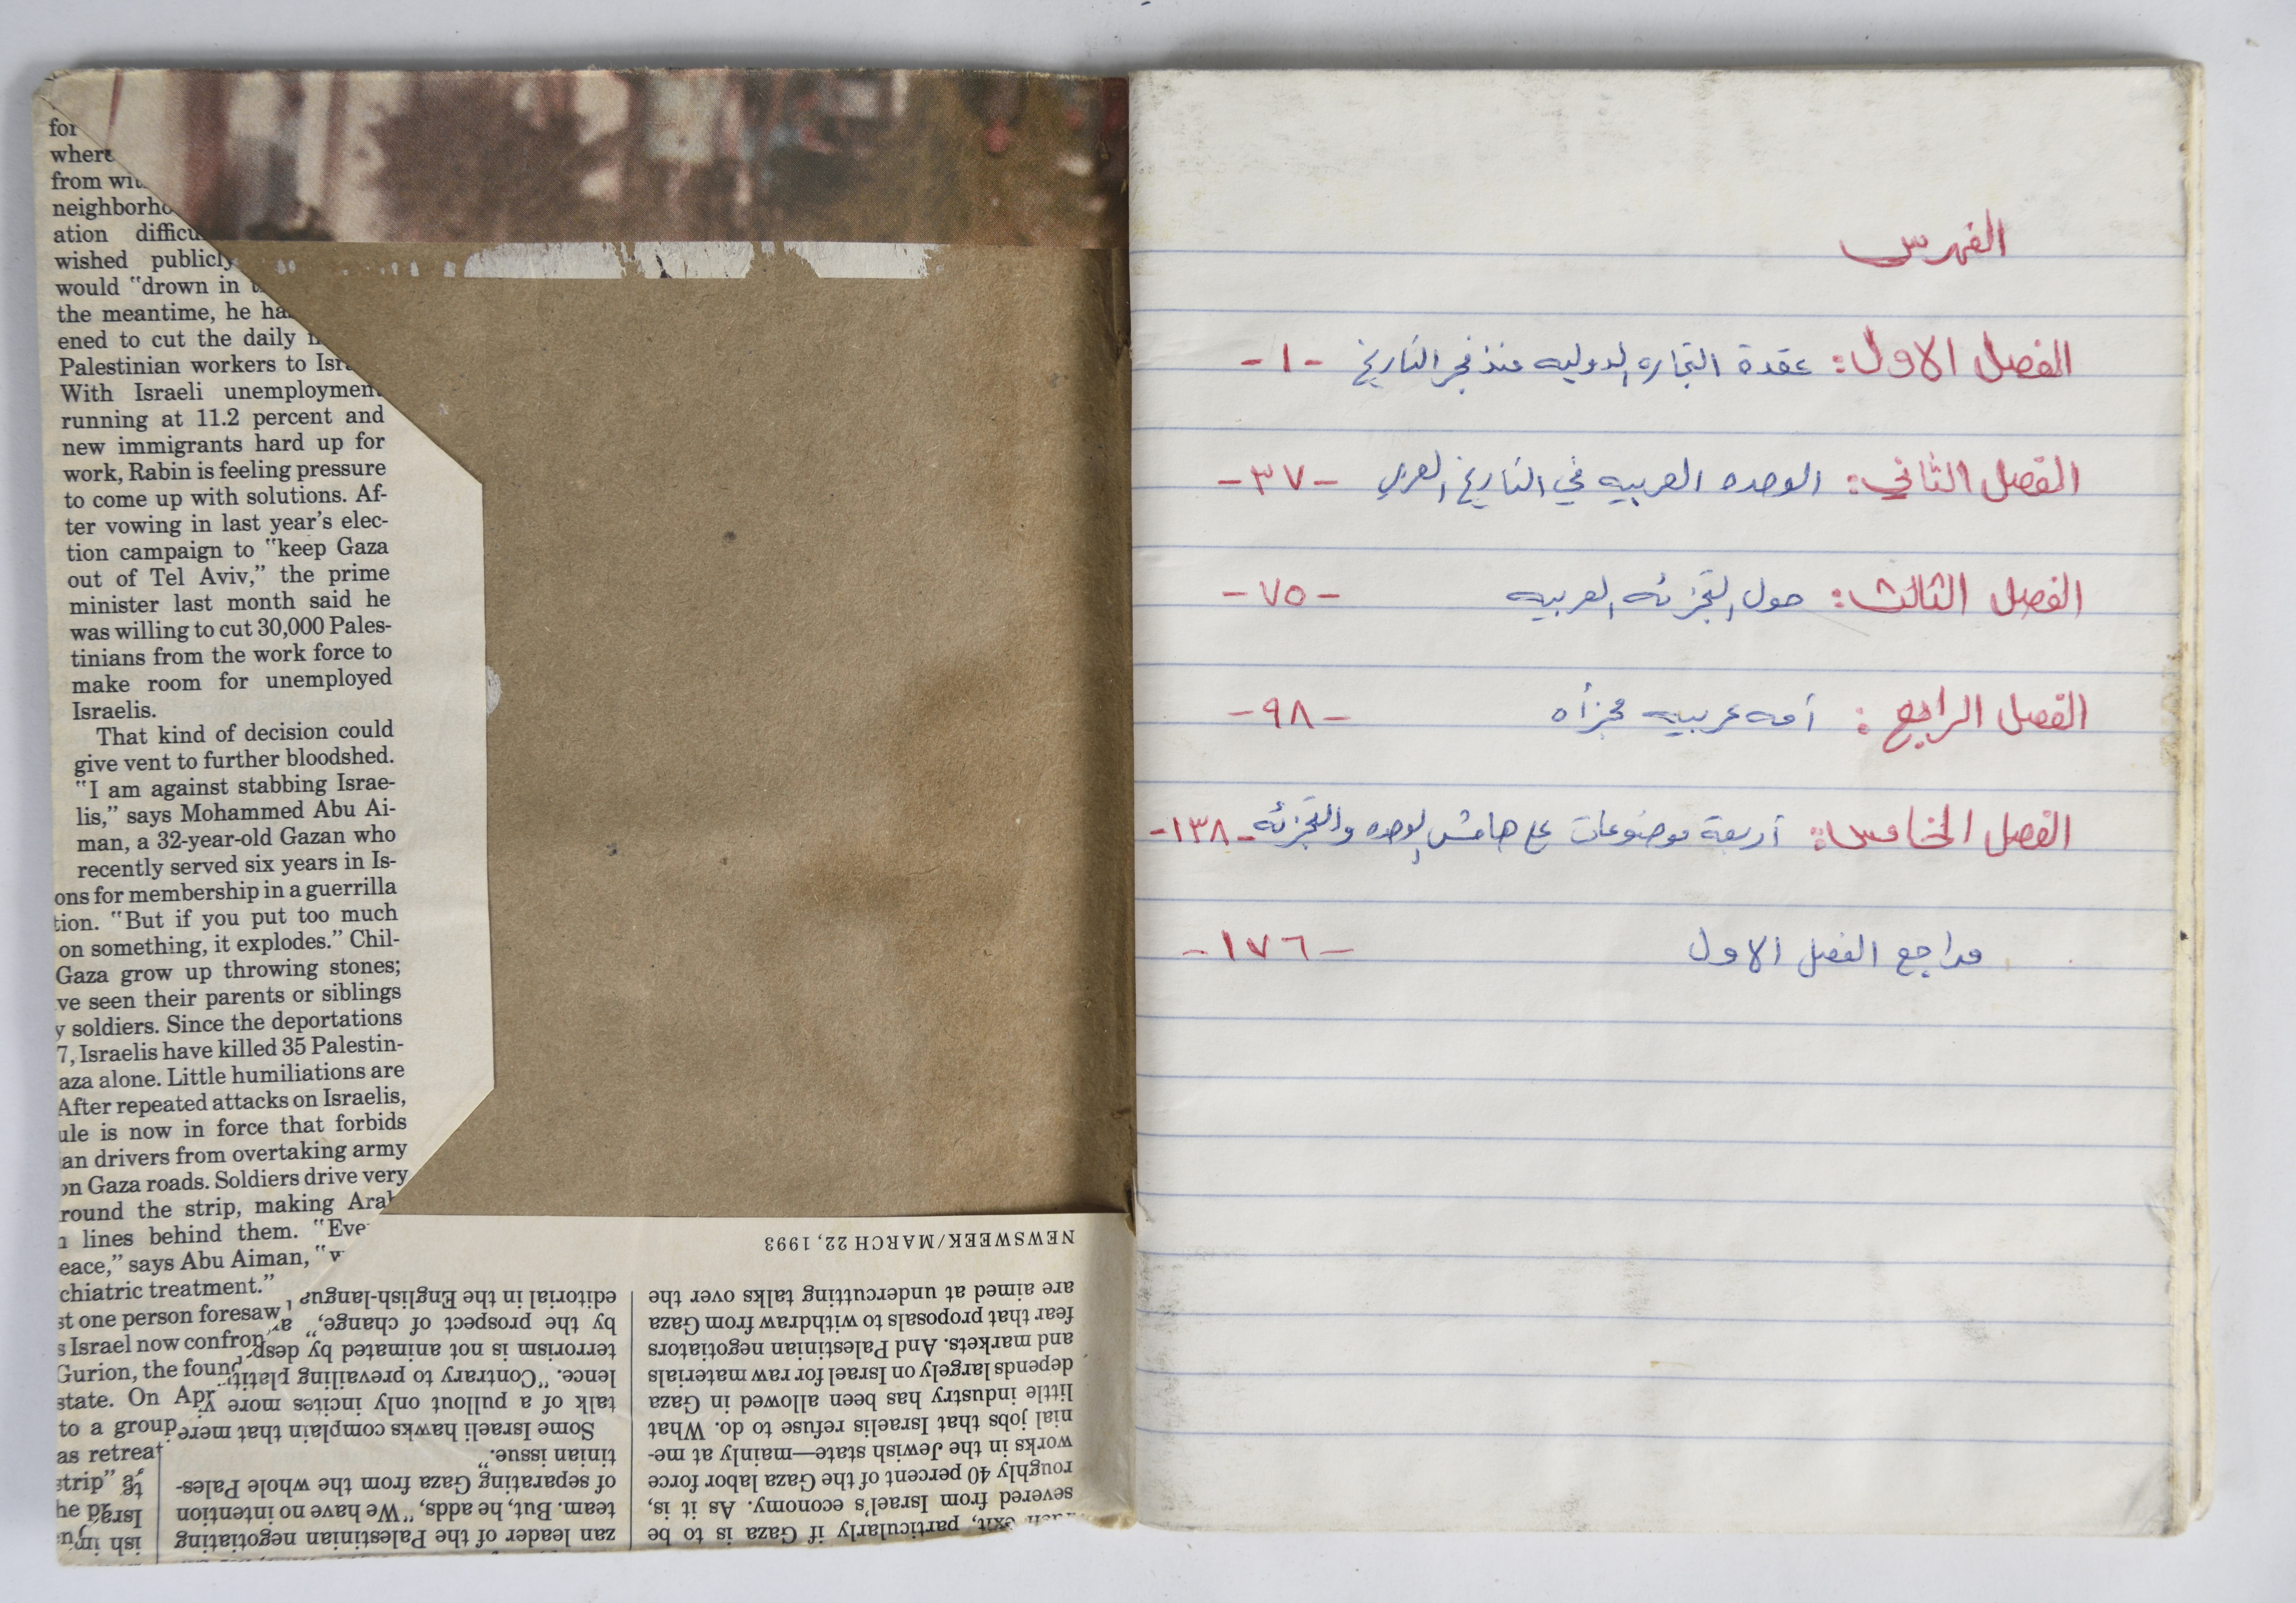 for
where
from wit
neighborho
ation difficu
wished publicly
would "drown in
the meantime, he ha
ened to cut the daily
Palestinian workers to Isra
With Israeli unemployment
running at 11.2 percent and
new immigrants hard up for
work, Rabin is feeling pressure
to come up with solutions. Af-
ter vowing in last year's elec-
tion campaign to "keep Gaza
out of Tel Aviv," the prime
minister last month said he
was willing to cut 30,000 Pales-
tinians from the work force to
make room for unemployed
Israelis.
That kind of decision could
give vent to further bloodshed.
"I am against stabbing Israe-
lis," says Mohammed Abu Ai-
man, a 32-year-old Gazan who
recently served six years in Is-
ons for membership in a guerrilla
tion. "But if you put too much
on something, it explodes." Chil-
Gaza grow up throwing stones;
ve seen their parents or siblings
y soldiers. Since the deportations
7, Israelis have killed 35 Palestin-
aza alone. Little humiliations are
After repeated attacks on Israelis,
ule is now in force that forbids
an drivers from overtaking army
on Gaza roads. Soldiers drive very
round the strip, making Arab
lines behind them. "Eve
eace," says Abu Aiman, "w
chiatric treatment."
st one person foresaw
s Israel now confron
Gurion, the found
state. On Apr
to a group
as retreat
strip" a
he pa
zan leader of the Palestinian negotiating
team. But, he adds, "We have no intention
of separating Gaza from the whole Pales-
tinian issue."
Some Israeli hawks complain that mere
talk of a pullout only incites more vi
lence. "Contrary to prevailing platitu
terrorism is not animated by desp
by the prospect of change," a
editorial in the English-langua
exit, particularly if Gaza is to be
severed from Israel's economy. As it is,
roughly 40 percent of the Gaza labor force
works in the Jewish state—mainly at me-
nial jobs that Israelis refuse to do. What
little industry has been allowed in Gaza
depends largely on Israel for raw materials
and markets. And Palestinian negotiators
fear that proposals to withdraw from Gaza
are aimed at undercutting talks over the
NEWSWEEK/MARCH 22, 1993
الفهرس
الفصل الاول: عقدة التجاره الدوليه منذ فجر التاريخ -١-
الفصل الثاني: الوحده العربيه في التاريخ العربي -٣٧-
الفصل الثالث: حول التجزئه العربيه -٧٥-
الفصل الرابع: أمه عربيه مجزأه -٩٨-
الفصل الخامس: أربعة موضوعات على هامش الوحده والتجزئه -١٣٨-
مراجع الفصل الاول -١٧٦-